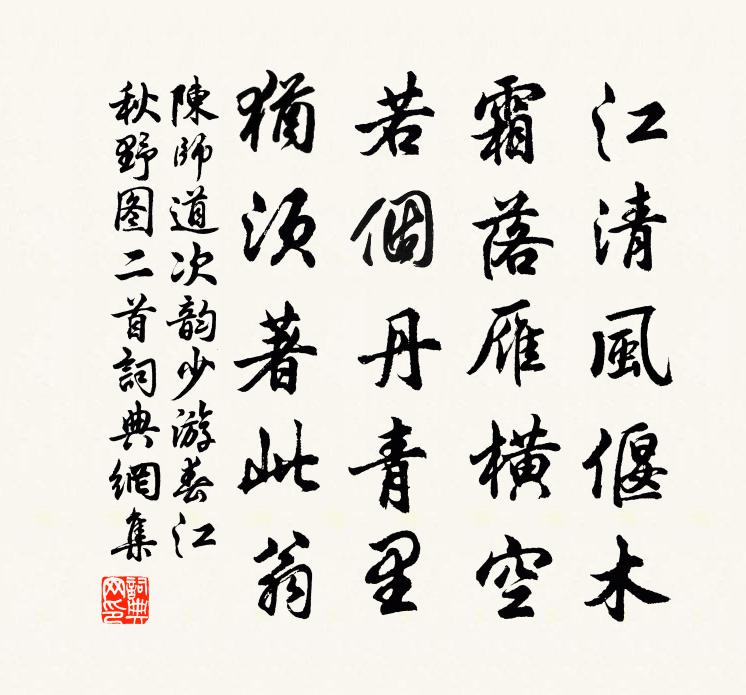 江清風偃木
霜落雁橫空
若個丹青里
猶須著此翁
陳師道次韵少游春江
秋野图二首詞典網集
詞典网印